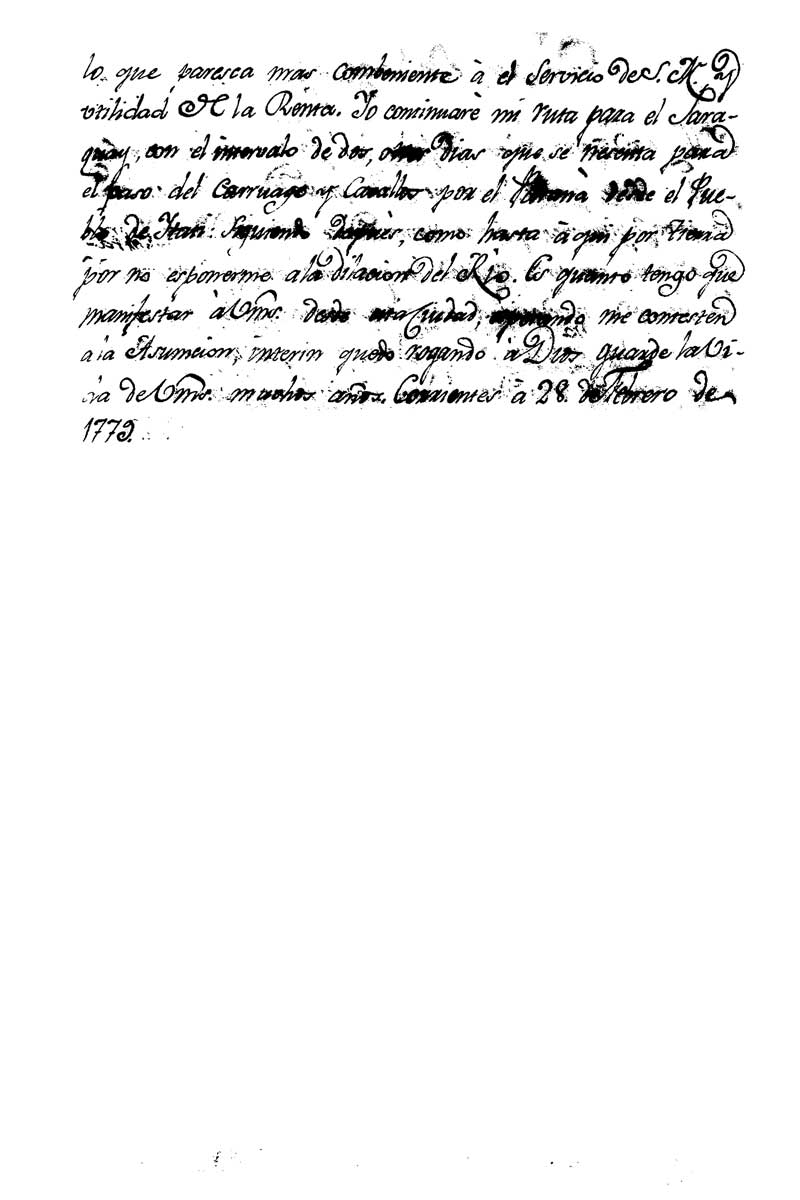 lo que paresca mas combeniente à el Servicio de S. M. y
utilidad de la Renta. Yo continuarè mi ruta para el Para-
guày, con el intervalo de dos, o tres dias que se necesita para
el paso del Carruage y Cavallos por el Paranà desde el Pue-
blo de Itati Siguiendo despùes, como hasta àqui por tierra
por no esponerme a la dilacion del Rio. Es quanto tengo que
manifestar à Vms. desde esta Ciudad, esperando me contesten
a la Asumcion, interin quedo rogando à Dios guarde la Vi-
da de Vms. muchos años. Corrientes à 28 de Febrero de
1779.